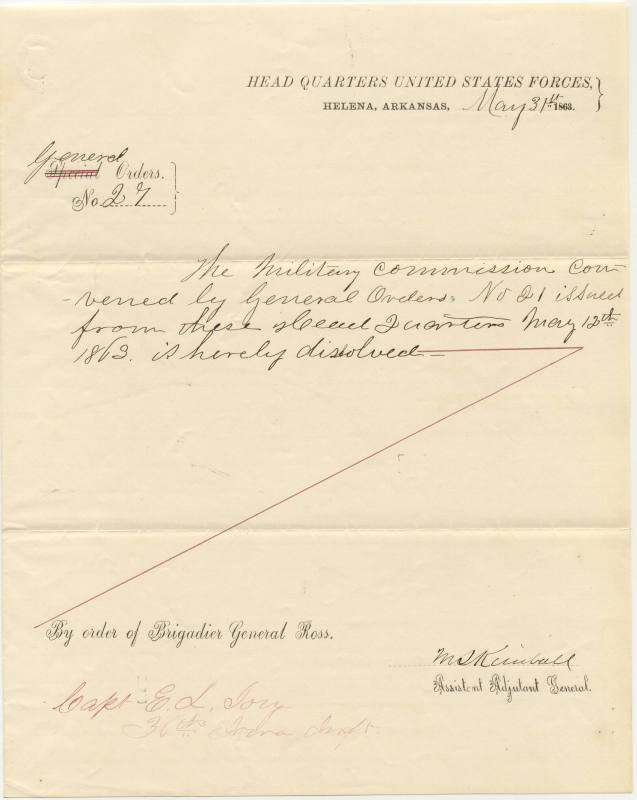 HEAD QUARTERS UNITED STATES FORCES,
HELENA, ARKANSAS, May 31st 1863.
General
Special Orders.
No. 27
The Military Commission Con-
-vened by General Orders. No 21 issued
from these Head Quarters May 12th
1863. is hereby dissolved—
By order of Brigadier General Ross.
M S Kimball
Assistent Adjutant General.
Capt E. L. Joy
36th Iowa Inft.